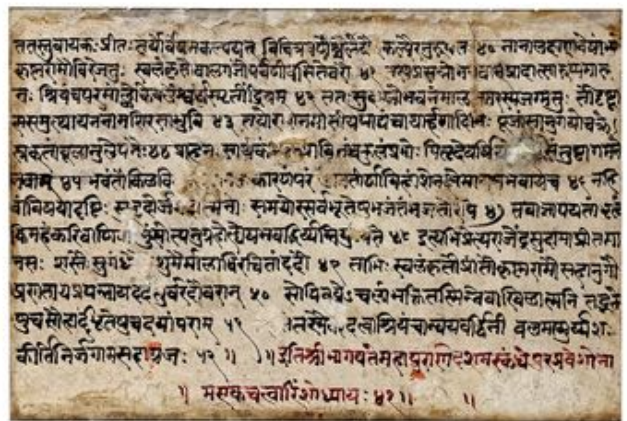 ततस्तुवायकः प्रीतः तयोर्वेषमकल्पयत् विचित्रवर्णैश्चैलेयै कल्पैरनुरूपतः ४० नानालक्षणवेषाभ्यां
कृष्णरामौविरेजतुः स्वलंकृतौबालगजौपर्वणीवसितेतरौ ४१ तस्यप्रसन्नोभगवान्प्रादात्सारूप्यमात्म
नः श्रियंचपरमांलोकेबलैश्वर्यस्मृतींद्रियम् ४२ ततः सुदाम्नोभवनंमालाकारस्यजग्मतुः तौदृष्ट्वा
ससमुत्थायननामशिरसाभुवि ४३ तयोरासनमानीयपाद्यंचार्घ्यार्हणादिभिः पूजांसानुगयोश्चक्रे
स्रक्तांबूलानुलेपनैः ४४ प्राहनः सार्थकं जन्मपावितंचकुलंप्रभो पितृदेवर्षयो तुष्टाह्यागमने
नवाम् ४५ भवंतौकिलवि कारणंपरं वतीर्णाविहांशेनक्षेमायचभवायच ४६ नहि
वांविषयादृष्टिः सुहृदोर्जगदात्मनोः समयोः सर्वभूतेषुभजंतंभजतोरपि ४७ तावाज्ञापयतां
किमहंकरवाणिवां पुंसोत्यनुग्रहोह्येषभवद्भिर्यन्नियुज्यते ४८ इत्यभिप्रेत्यराजेंद्रसुदामाप्रीतमा
नसः शस्तैः सुगंधैः कुसुमैर्मालाविरचिताददौ ४९ ताभिः स्वलंकृतौप्रीतौकृष्णरामौसहानुगौ
प्रणतायप्रपन्नायददतुर्वरदौवरान् ५० सोपिवव्रेऽचलांभक्तिंतस्मिन्नेवाखिलात्मनि तद्भक्ते
षुचसौहार्दंभूतेषुचदयांपराम् ५१ वरंदत्वाश्रियंचान्वयवर्द्धिनीं बलमायुर्यशः
कांतिंनिर्जगामसहाग्रजः ५२ ॥ ॥ इतिश्रीभागवतेमहापुराणेदशमस्कंधेपुरप्रवेशोना
॥ मएकचत्वारिंशोध्यायः ४१ ॥ ॥